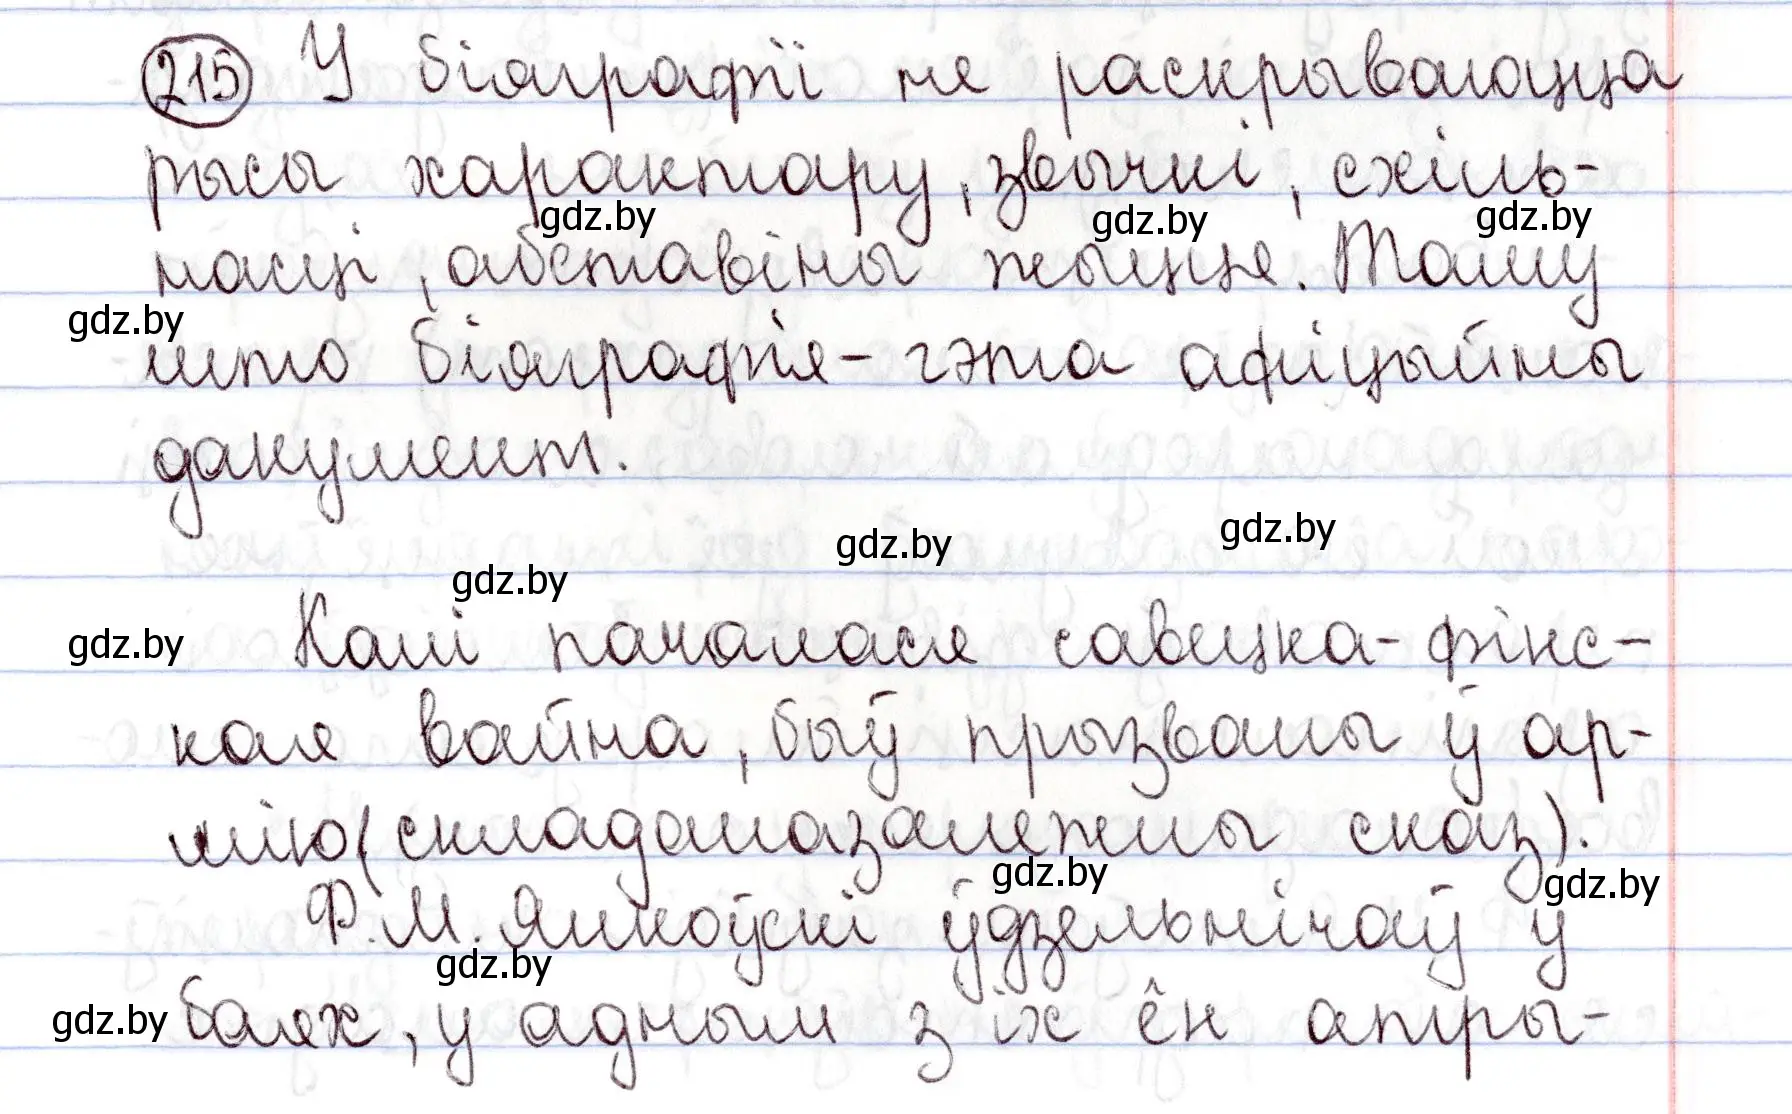 215 У біяграфіі не раскрываюцца
рысы характару, звычкі, схіль-
gdz.by gdz.by gdz.by
насці, абставіны жыцця. Таму
gdz.by
што біяграфія – гэта афіцыйны
дакумент.
gdz.by gdz.by
gdz.by
Калі пачалася савецка-фінс-
gdz.by
кая вайна, быў прызваны ў ар-
мію (складаназалежны сказ).
gdz.by gdz.by
Ф.М. Янкоўскі ўдзельнічаў у
gdz.by
баях, у адным з іх ён атры-
gdz.by